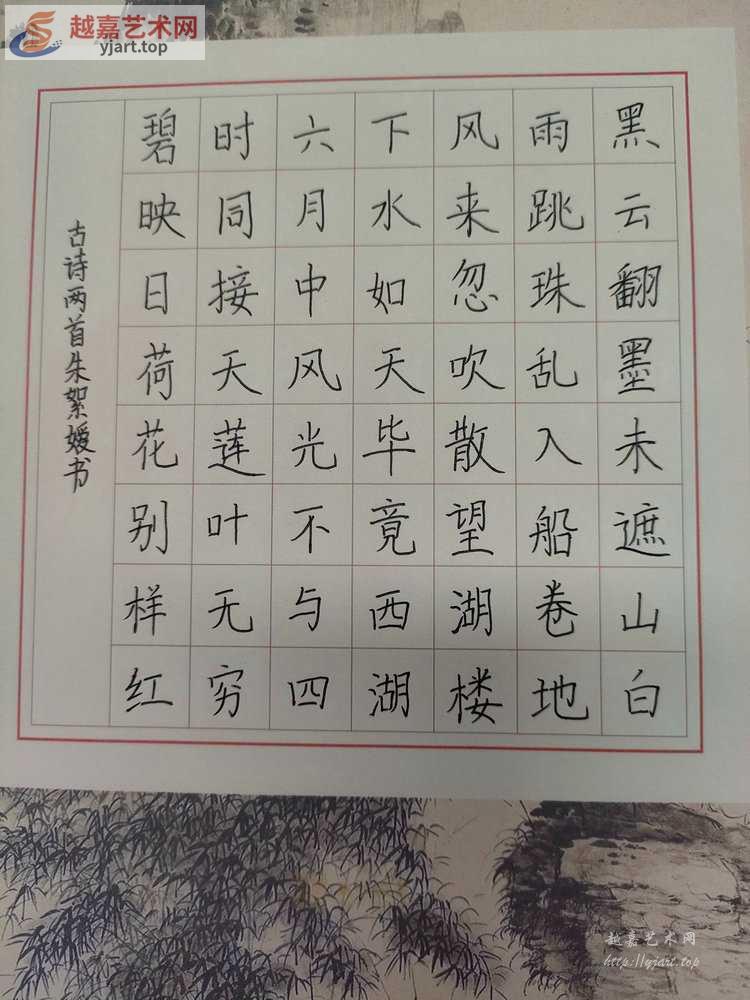 越嘉艺术网
yjart.top
黑云翻墨未遮山白
雨跳珠乱入船卷地
风来忽吹散望湖楼
下水如天毕竟西湖
六月中风光不与四
时同接天莲叶无穷
碧映日荷花别样红
古诗两首朱絮嫒书
越嘉艺术网
http://yjart.top